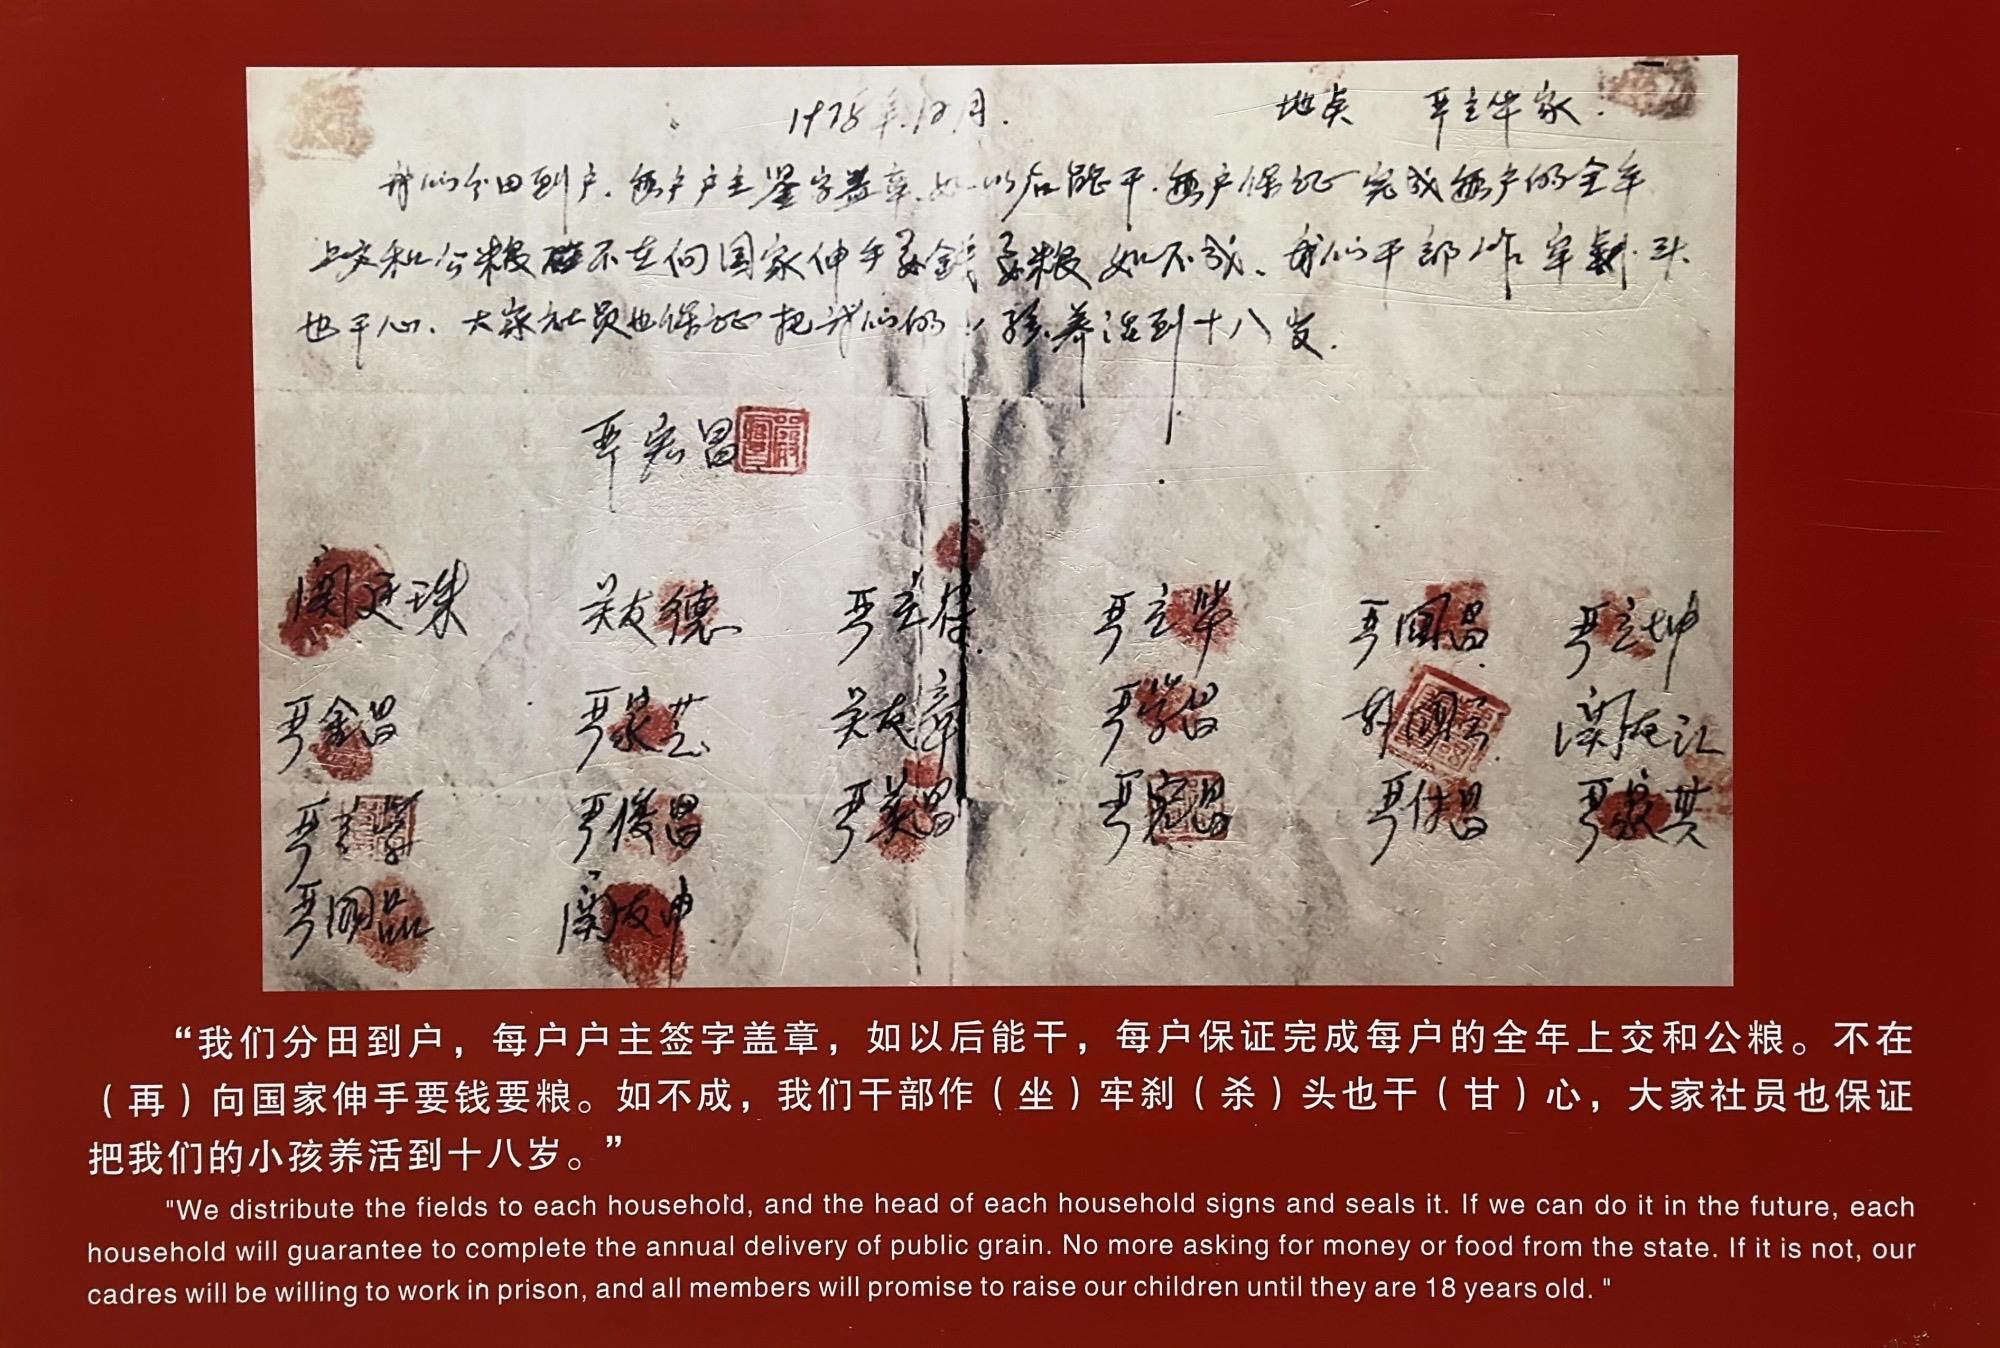 1978年.12月.
地点 严立华家.
我们分田到户.每户户主鉴字盖章.如以后能干.每户保证完成每户的全年
上交和公粮不在向国家伸手要钱要粮如不成.我们干部作牢刹头
也干心.大家社员也保证把我们的小孩养活到十八岁.
严宏昌
关廷珠 关友德 严立符 严立华 严国昌 严立坤
严金昌 严家芝 关友章 严学昌 韩国云 关友江
严立学 严俊昌 严美昌 严宏昌 严付昌 严家其
严国品 关友申
“我们分田到户，每户户主签字盖章，如以后能干，每户保证完成每户的全年上交和公粮。不在
（再）向国家伸手要钱要粮。如不成，我们干部作（坐）牢刹（杀）头也干（甘）心，大家社员也保证
把我们的小孩养活到十八岁。”
"We distribute the fields to each household, and the head of each household signs and seals it. If we can do it in the future, each
household will guarantee to complete the annual delivery of public grain. No more asking for money or food from the state. If it is not, our
cadres will be willing to work in prison, and all members will promise to raise our children until they are 18 years old. "